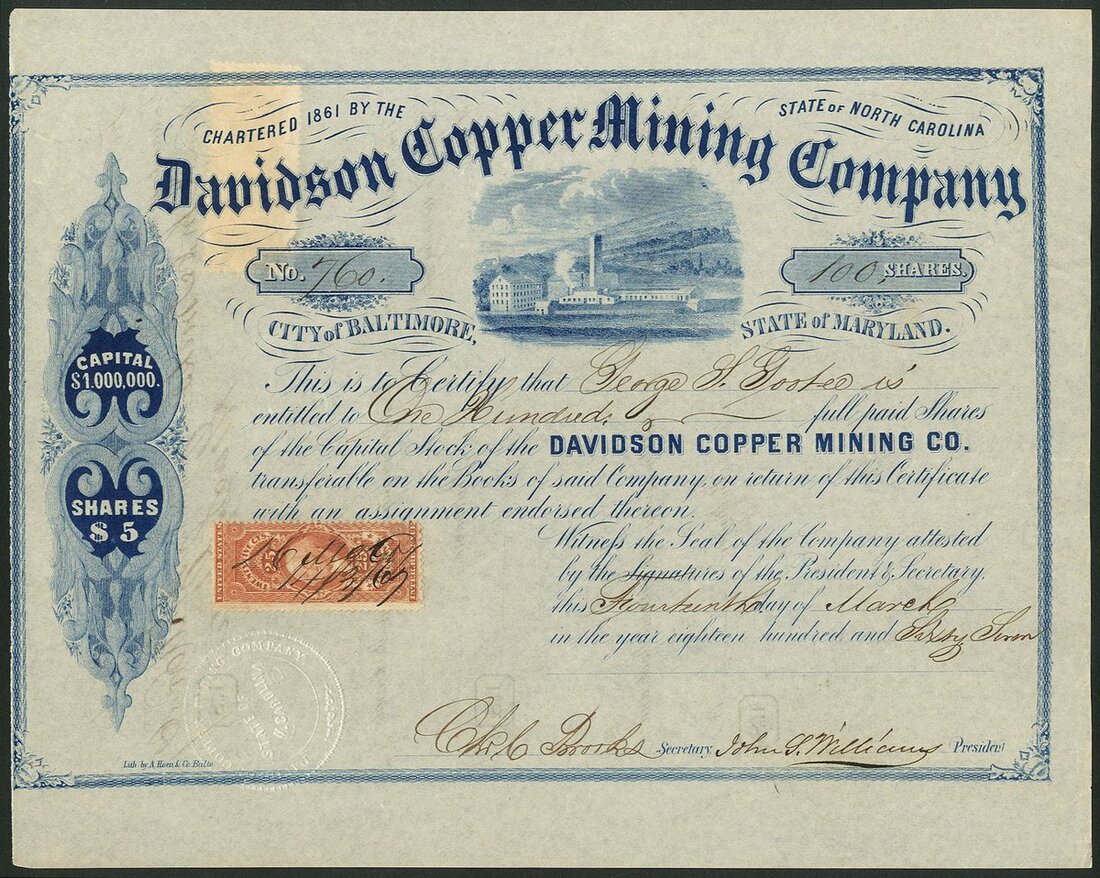 CHARTERED 1861 BY THE
STATE OF NORTH CAROLINA
Davidson Copper Mining Company
No. 760.
100, SHARES.
CITY of BALTIMORE,
STATE of MARYLAND.
CAPITAL
$1.000,000.
SHARES
$5
This is to Certify that George S. is
entitled to One Hundred full paid Shares
of the Capital Stock of the DAVIDSON COPPER MINING CO.
transferable on the Books of said Company, on return of this Certificate
with an assignment endorsed thereon.
Witness the Seal of the Company attested
by the Signatures of the President & Secretary,
this Fourteenth day of March
in the year eighteen hundred and Sixty Seven
UNITED STATES
25
MINING COMPANY
STATE OF
CAROLINA
Brooks Secretary. John S. Williams President
Lith. by A. Hoen & Co. Balto.